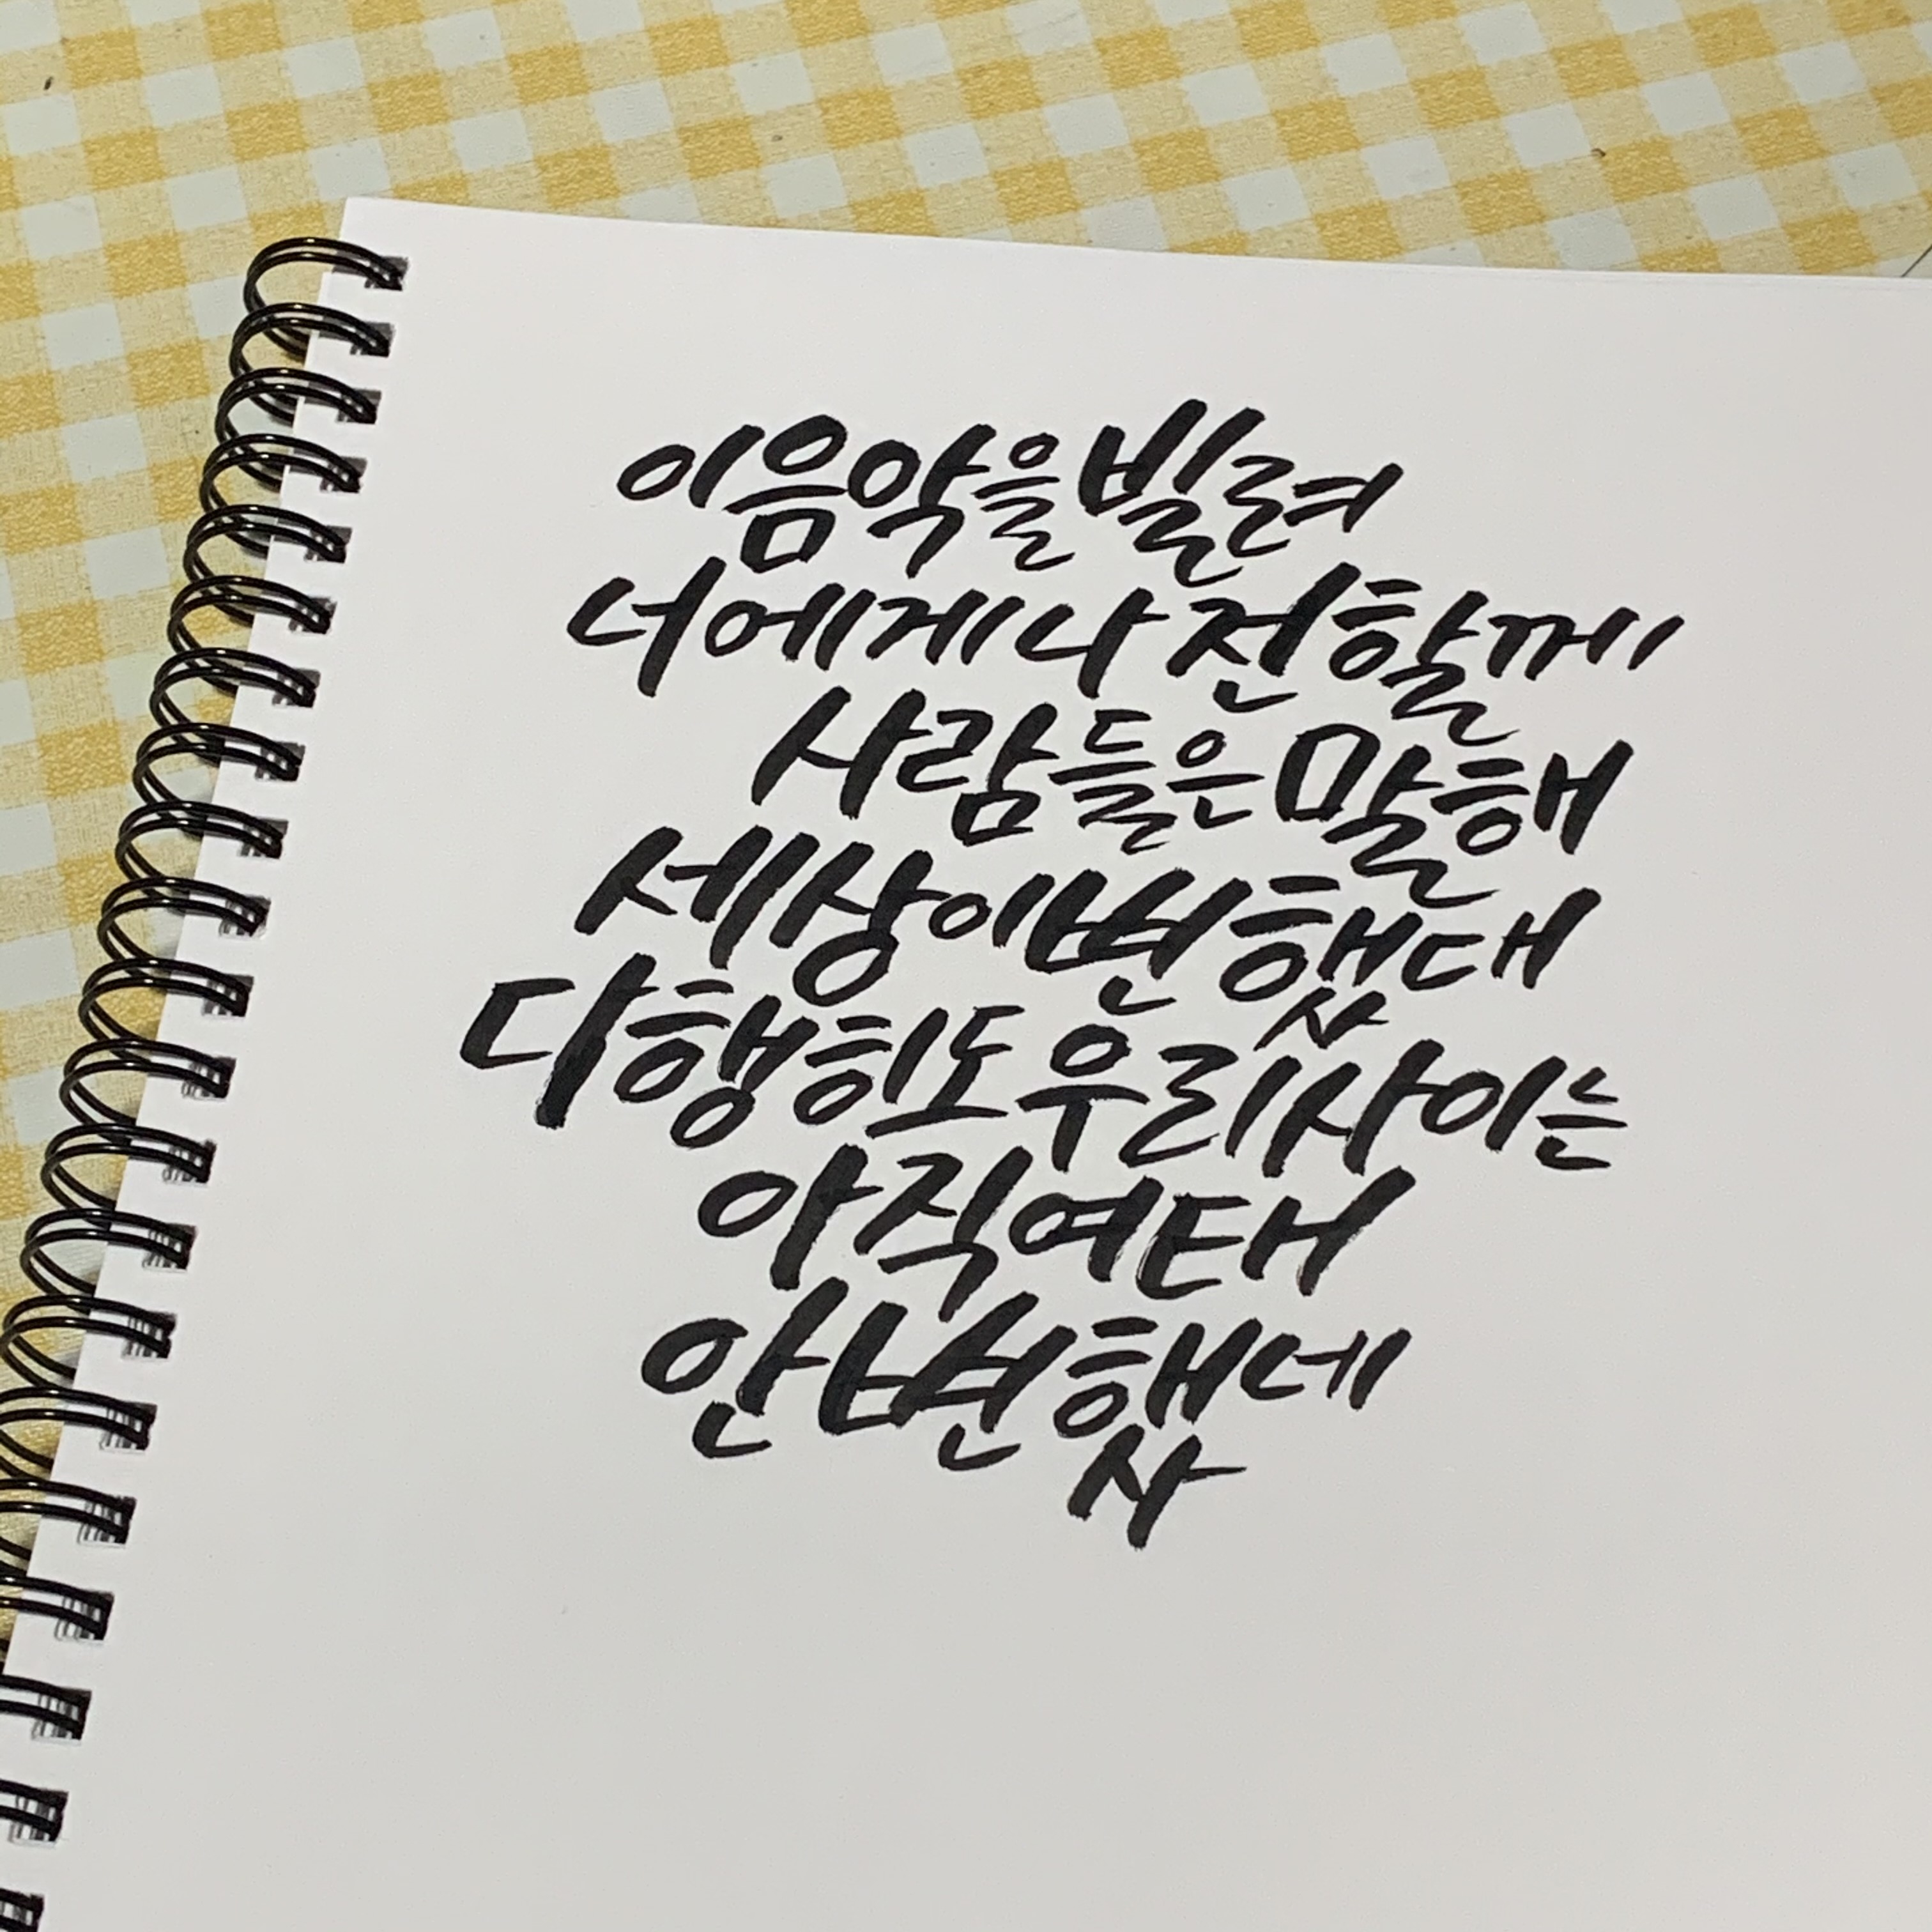 이 음악을 빌려
너에게 나 전할께
사람들은 말해
세상이 변했대
다행히도 우리 사이는
아직 여태
안 변했네